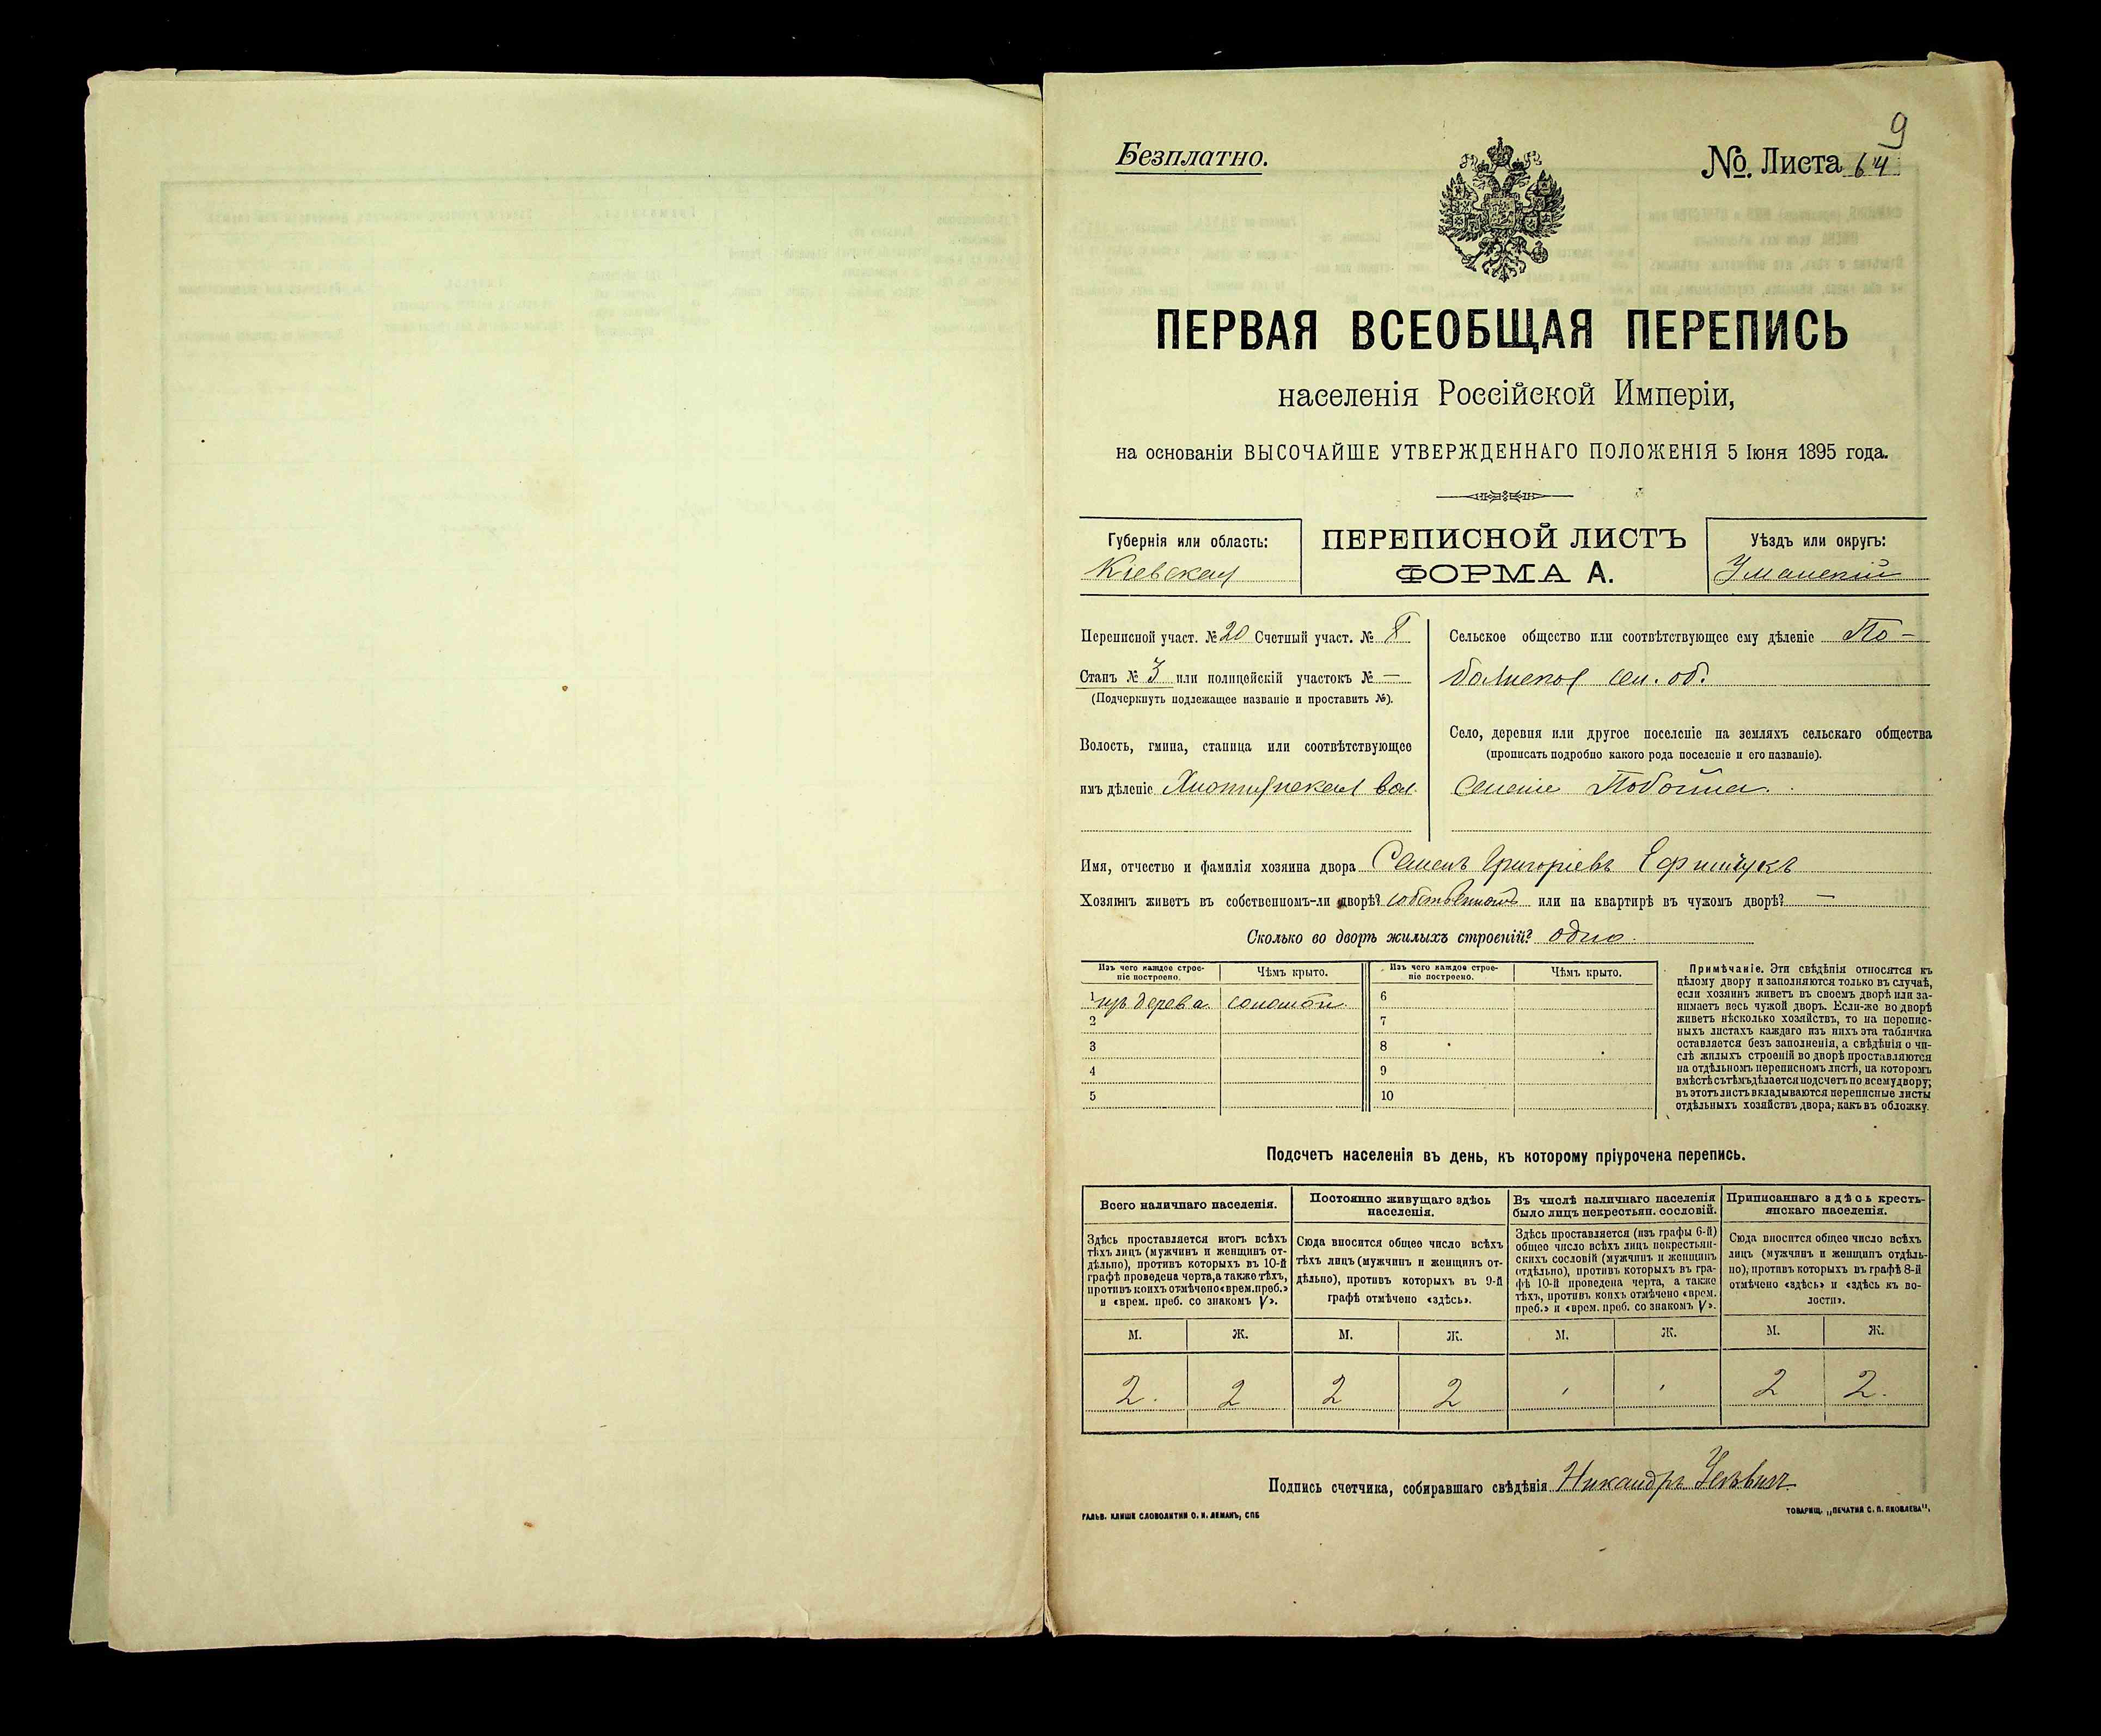 9
Безплатно.
№. Листа 64
ПЕРВАЯ ВСЕОБЩАЯ ПЕРЕПИСЬ
населенія Россійской Имперіи,
на основаніи ВЫСОЧАЙШЕ УТВЕРЖДЕННАГО ПОЛОЖЕНІЯ 5 Іюня 1895 года.
Губернія или область:
Кіевская
ПЕРЕПИСНОЙ ЛИСТЪ
ФОРМА А.
Уѣздъ или округъ:
Уманскій
Переписной участ. № 20 Счетный участ. № 8
Станъ № 3 или полицейскій участокъ № —
(Подчеркнуть подлежащее названіе и проставить №).
Волость, гмина, станица или соотвѣтствующее
имъ дѣленіе вол.
Сельское общество или соотвѣтствующее ему дѣленіе По-
об.
Село, деревня или другое поселеніе на земляхъ сельскаго общества
(прописать подробно какого рода поселеніе и его названіе).
селеніе Побойна.
Имя, отчество и фамилія хозяина двора Семенъ Григоріевъ
Хозяинъ живетъ въ собственномъ-ли дворѣ? собственномъ или на квартирѣ въ чужомъ дворѣ? —
Сколько во дворѣ жилыхъ строеній? одно.
Изъ чего каждое строе-
ніе построено.
Чѣмъ крыто.
1 изъ дерева соломой
2
3
4
5
Изъ чего каждое строе-
ніе построено.
Чѣмъ крыто.
6
7
8
9
10
Примѣчаніе. Эти свѣдѣнія относятся къ
цѣлому двору и заполняются только въ случаѣ,
если хозяинъ живетъ въ своемъ дворѣ или за-
нимаетъ весь чужой дворъ. Если-же во дворѣ
живетъ нѣсколько хозяйствъ, то на перепис-
ныхъ листахъ каждаго изъ нихъ эта табличка
оставляется безъ заполненія, а свѣдѣнія о чи-
слѣ жилыхъ строеній во дворѣ проставляются
на отдѣльномъ переписномъ листѣ, на которомъ
вмѣстѣ съ тѣмъ дѣлается подсчетъ по всему двору;
въ этотъ листъ вкладываются переписные листы
отдѣльныхъ хозяйствъ двора, какъ въ обложку.
Подсчетъ населенія въ день, къ которому пріурочена перепись.
Всего наличнаго населенія.
Здѣсь проставляется итогъ всѣхъ
тѣхъ лицъ (мужчинъ и женщинъ от-
дѣльно), противъ которыхъ въ 10-й
графѣ проведена черта, а также тѣхъ,
противъ коихъ отмѣчено «врем. преб.»
и «врем. преб. со знакомъ V».
М. Ж.
2. 2
Постоянно живущаго здѣсь
населенія.
Сюда вносится общее число всѣхъ
тѣхъ лицъ (мужчинъ и женщинъ от-
дѣльно), противъ которыхъ въ 9-й
графѣ отмѣчено «здѣсь».
М. Ж.
2 2
Въ числѣ наличнаго населенія
было лицъ некрестьян. сословій.
Здѣсь проставляется (изъ графы 6-й)
общее число всѣхъ лицъ некрестьян-
скихъ сословій (мужчинъ и женщинъ
отдѣльно), противъ которыхъ въ гра-
фѣ 10-й проведена черта, а также
тѣхъ, противъ коихъ отмѣчено «врем.
преб.» и «врем. преб. со знакомъ V».
М. Ж.
Приписаннаго здѣсь кресть-
янскаго населенія.
Сюда вносится общее число всѣхъ
лицъ (мужчинъ и женщинъ отдѣль-
но), противъ которыхъ въ графѣ 8-й
отмѣчено «здѣсь» и «здѣсь къ во-
лости».
М. Ж.
2 2.
Подпись счетчика, собиравшаго свѣдѣнія Никандръ
ГАЛЬВ. КЛИШЕ СЛОВОЛИТНИ О. И. ЛЕМАНЪ, СПБ
ТОВАРИЩ. „ПЕЧАТНЯ С. П. ЯКОВЛЕВА".